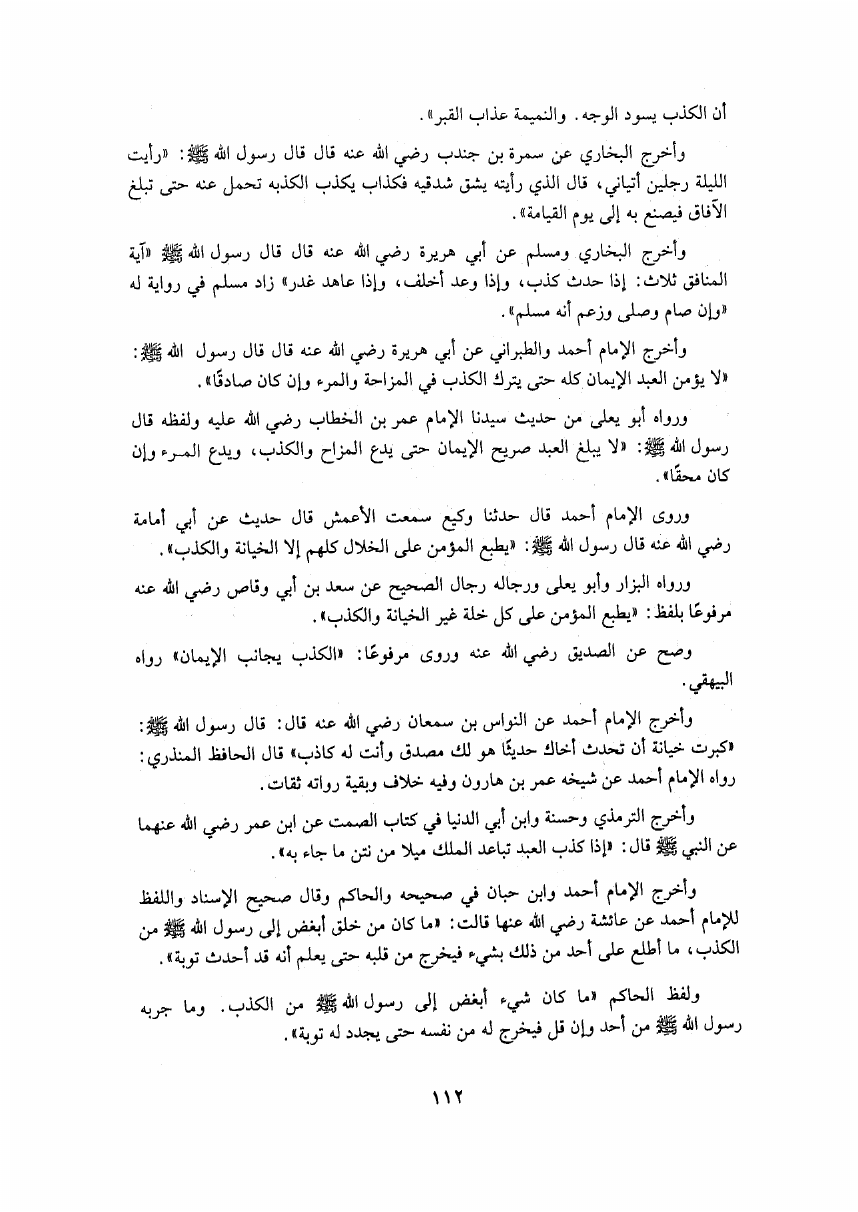 أن الكذب يسود الوجه. والنميمة عذاب القبر».
وأخرج البخاري عن سمرة بن جندب رضي الله عنه قال قال رسول الله ﷺ: «رأيت
الليلة رجلين أتياني، قال الذي رأيته يشق شدقيه فكذاب يكذب الكذبه تحمل عنه حتى تبلغ
الآفاق فيصنع به إلى يوم القيامة».
وأخرج البخاري ومسلم عن أبي هريرة رضي الله عنه قال قال رسول الله ﷺ «آية
المنافق ثلاث: إذا حدث كذب، وإذا وعد أخلف، وإذا عاهد غدر» زاد مسلم في رواية له
«وإن صام وصلى وزعم أنه مسلم».
وأخرج الإمام أحمد والطبراني عن أبي هريرة رضي الله عنه قال قال رسول الله ﷺ:
«لا يؤمن العبد الإيمان كله حتى يترك الكذب في المزاحة والمرء وإن كان صادقًا».
ورواه أبو يعلى من حديث سيدنا الإمام عمر بن الخطاب رضي الله عليه ولفظه قال
رسول الله ﷺ: «لا يبلغ العبد صريح الإيمان حتى يدع المزاح والكذب، ويدع المـرء وإن
كان محقًا».
وروى الإمام أحمد قال حدثنا وكيع سمعت الأعمش قال حديث عن أبي أمامة
رضي الله عنه قال رسول الله ﷺ: «يطبع المؤمن على الخلال كلهم إلا الخيانة والكذب».
ورواه البزار وأبو يعلى ورجاله رجال الصحيح عن سعد بن أبي وقاص رضي الله عنه
مرفوعًا بلفظ: «يطبع المؤمن على كل خلة غير الخيانة والكذب».
وصح عن الصديق رضي الله عنه وروى مرفوعًا: «الكذب يجانب الإيمان» رواه
البيهقي.
وأخرج الإمام أحمد عن النواس بن سمعان رضي الله عنه قال: قال رسول الله ﷺ:
«كبرت خيانة أن تحدث أخاك حديثًا هو لك مصدق وأنت له كاذب» قال الحافظ المنذري:
رواه الإمام أحمد عن شيخه عمر بن هارون وفيه خلاف وبقية رواته ثقات.
وأخرج الترمذي وحسنة وابن أبي الدنيا في كتاب الصمت عن ابن عمر رضي الله عنهما
عن النبي ﷺ قال: «إذا كذب العبد تباعد الملك ميلا من نتن ما جاء به».
وأخرج الإمام أحمد وابن حبان في صحيحه والحاكم وقال صحيح الإسناد واللفظ
للإمام أحمد عن عائشة رضي الله عنها قالت: «ما كان من خلق أبغض إلى رسول الله ﷺ من
الكذب، ما أطلع على أحد من ذلك بشيء فيخرج من قلبه حتى يعلم أنه قد أحدث توبة».
ولفظ الحاكم «ما كان شيء أبغض إلى رسول الله ﷺ من الكذب. وما جربه
رسول الله ﷺ من أحد وإن قل فيخرج له من نفسه حتى يجدد له توبة».
١١٢